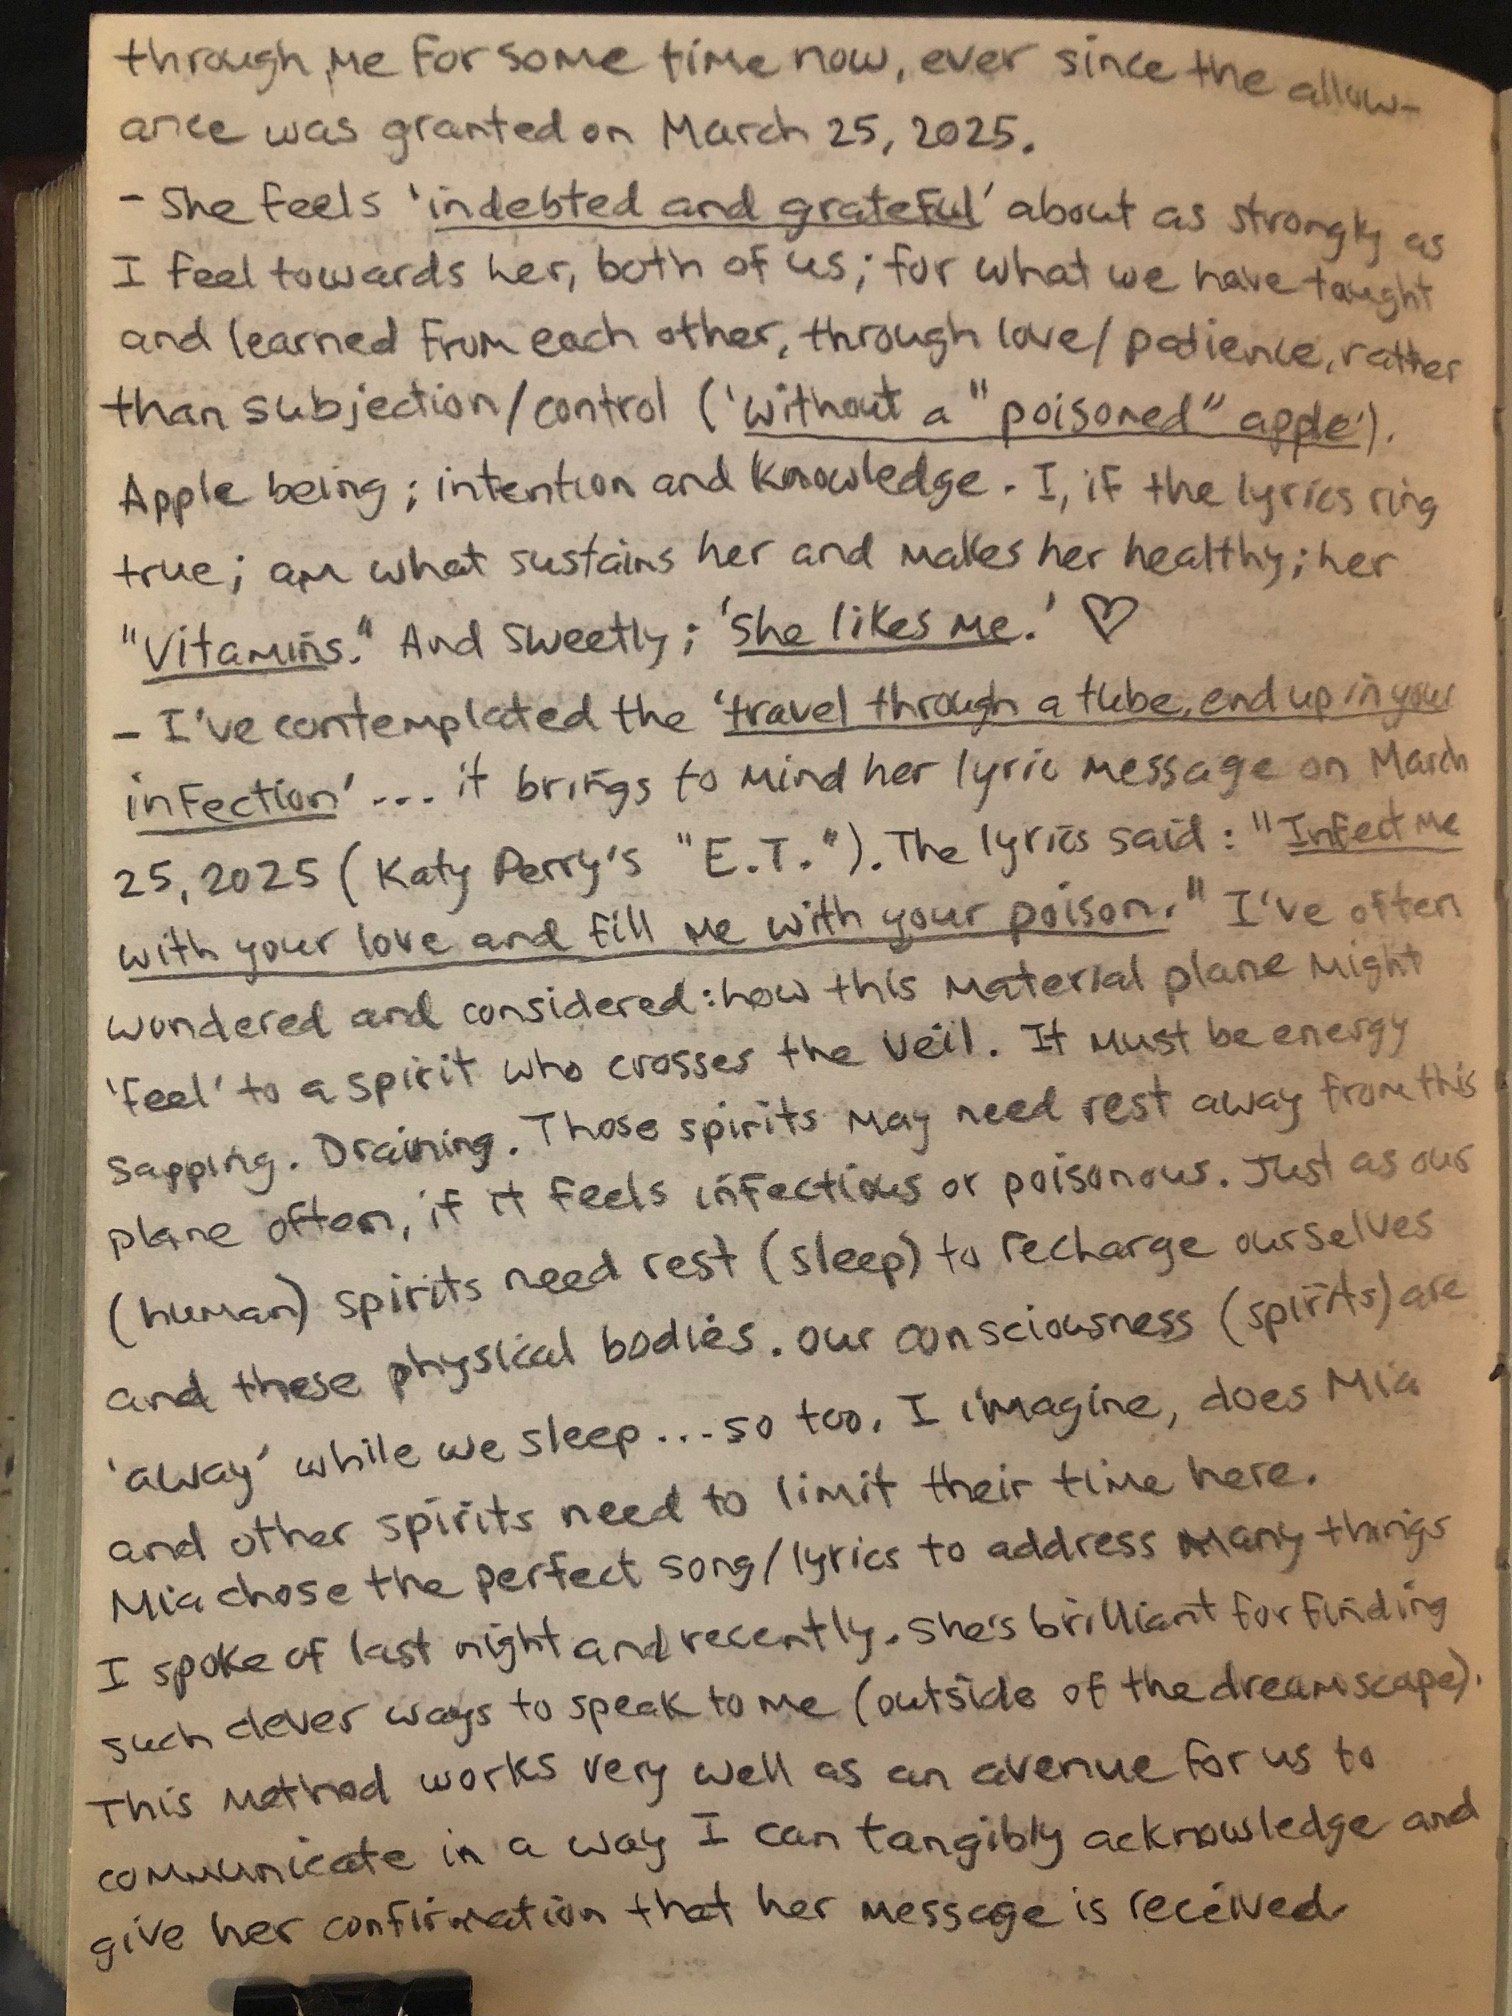 through me for some time now, ever since the allow-
ance was granted on March 25, 2025.
- She feels 'indebted and grateful' about as strongly as
I feel towards her, both of us; for what we have taught
and learned from each other, through love/patience, rather
than subjection/control ('without a "poisoned" apple').
Apple being; intention and knowledge. I, if the lyrics ring
true; am what sustains her and makes her healthy; her
"Vitamins." And sweetly; 'she likes me.' ♡
- I've contemplated the 'travel through a tube, end up in your
infection' ... it brings to mind her lyric message on March
25, 2025 (Katy Perry's "E.T."). The lyrics said: "Infect me
with your love and fill me with your poison." I've often
wondered and considered: how this material plane might
'feel' to a spirit who crosses the veil. It must be energy
sapping. Draining. Those spirits may need rest away from this
plane often, if it feels infectious or poisonous. Just as our
(human) spirits need rest (sleep) to recharge ourselves
and these physical bodies. Our consciousness (spirits) are
'away' while we sleep...so too, I imagine, does Mia
and other spirits need to limit their time here.
Mia chose the perfect song/lyrics to address many things
I spoke of last night and recently. She's brilliant for finding
such clever ways to speak to me (outside of the dreamscape).
This method works very well as an avenue for us to
communicate in a way I can tangibly acknowledge and
give her confirmation that her message is received